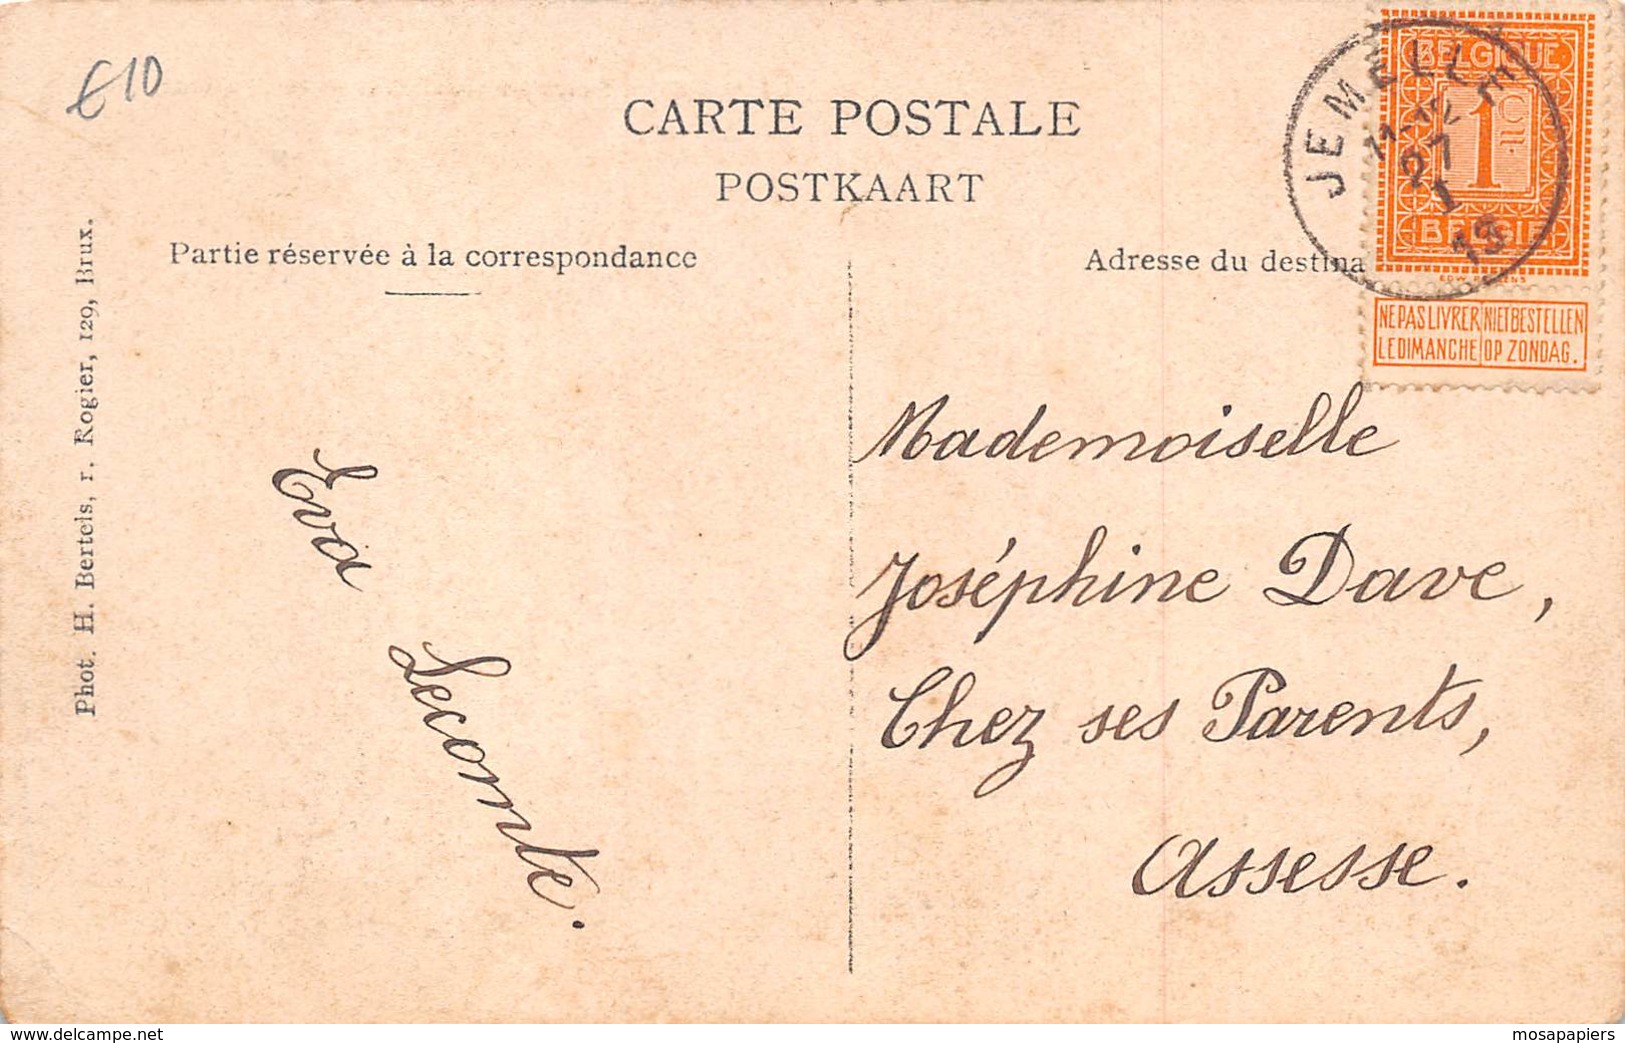 €10
CARTE POSTALE
POSTKAART
Partie réservée à la correspondance
Adresse du destina
BELGIQUE
1
BELGIE
NE PAS LIVRER
LE DIMANCHE
NIET BESTELLEN
OP ZONDAG.
JEMELLE
11-12
27
1
13
Phot. H. Bertels, r. Rogier, 129, Brux.
Eva
Lecomte.
Mademoiselle
Joséphine Dave,
Chez ses Parents,
Assesse.
www.delcampe.net
mosapapiers